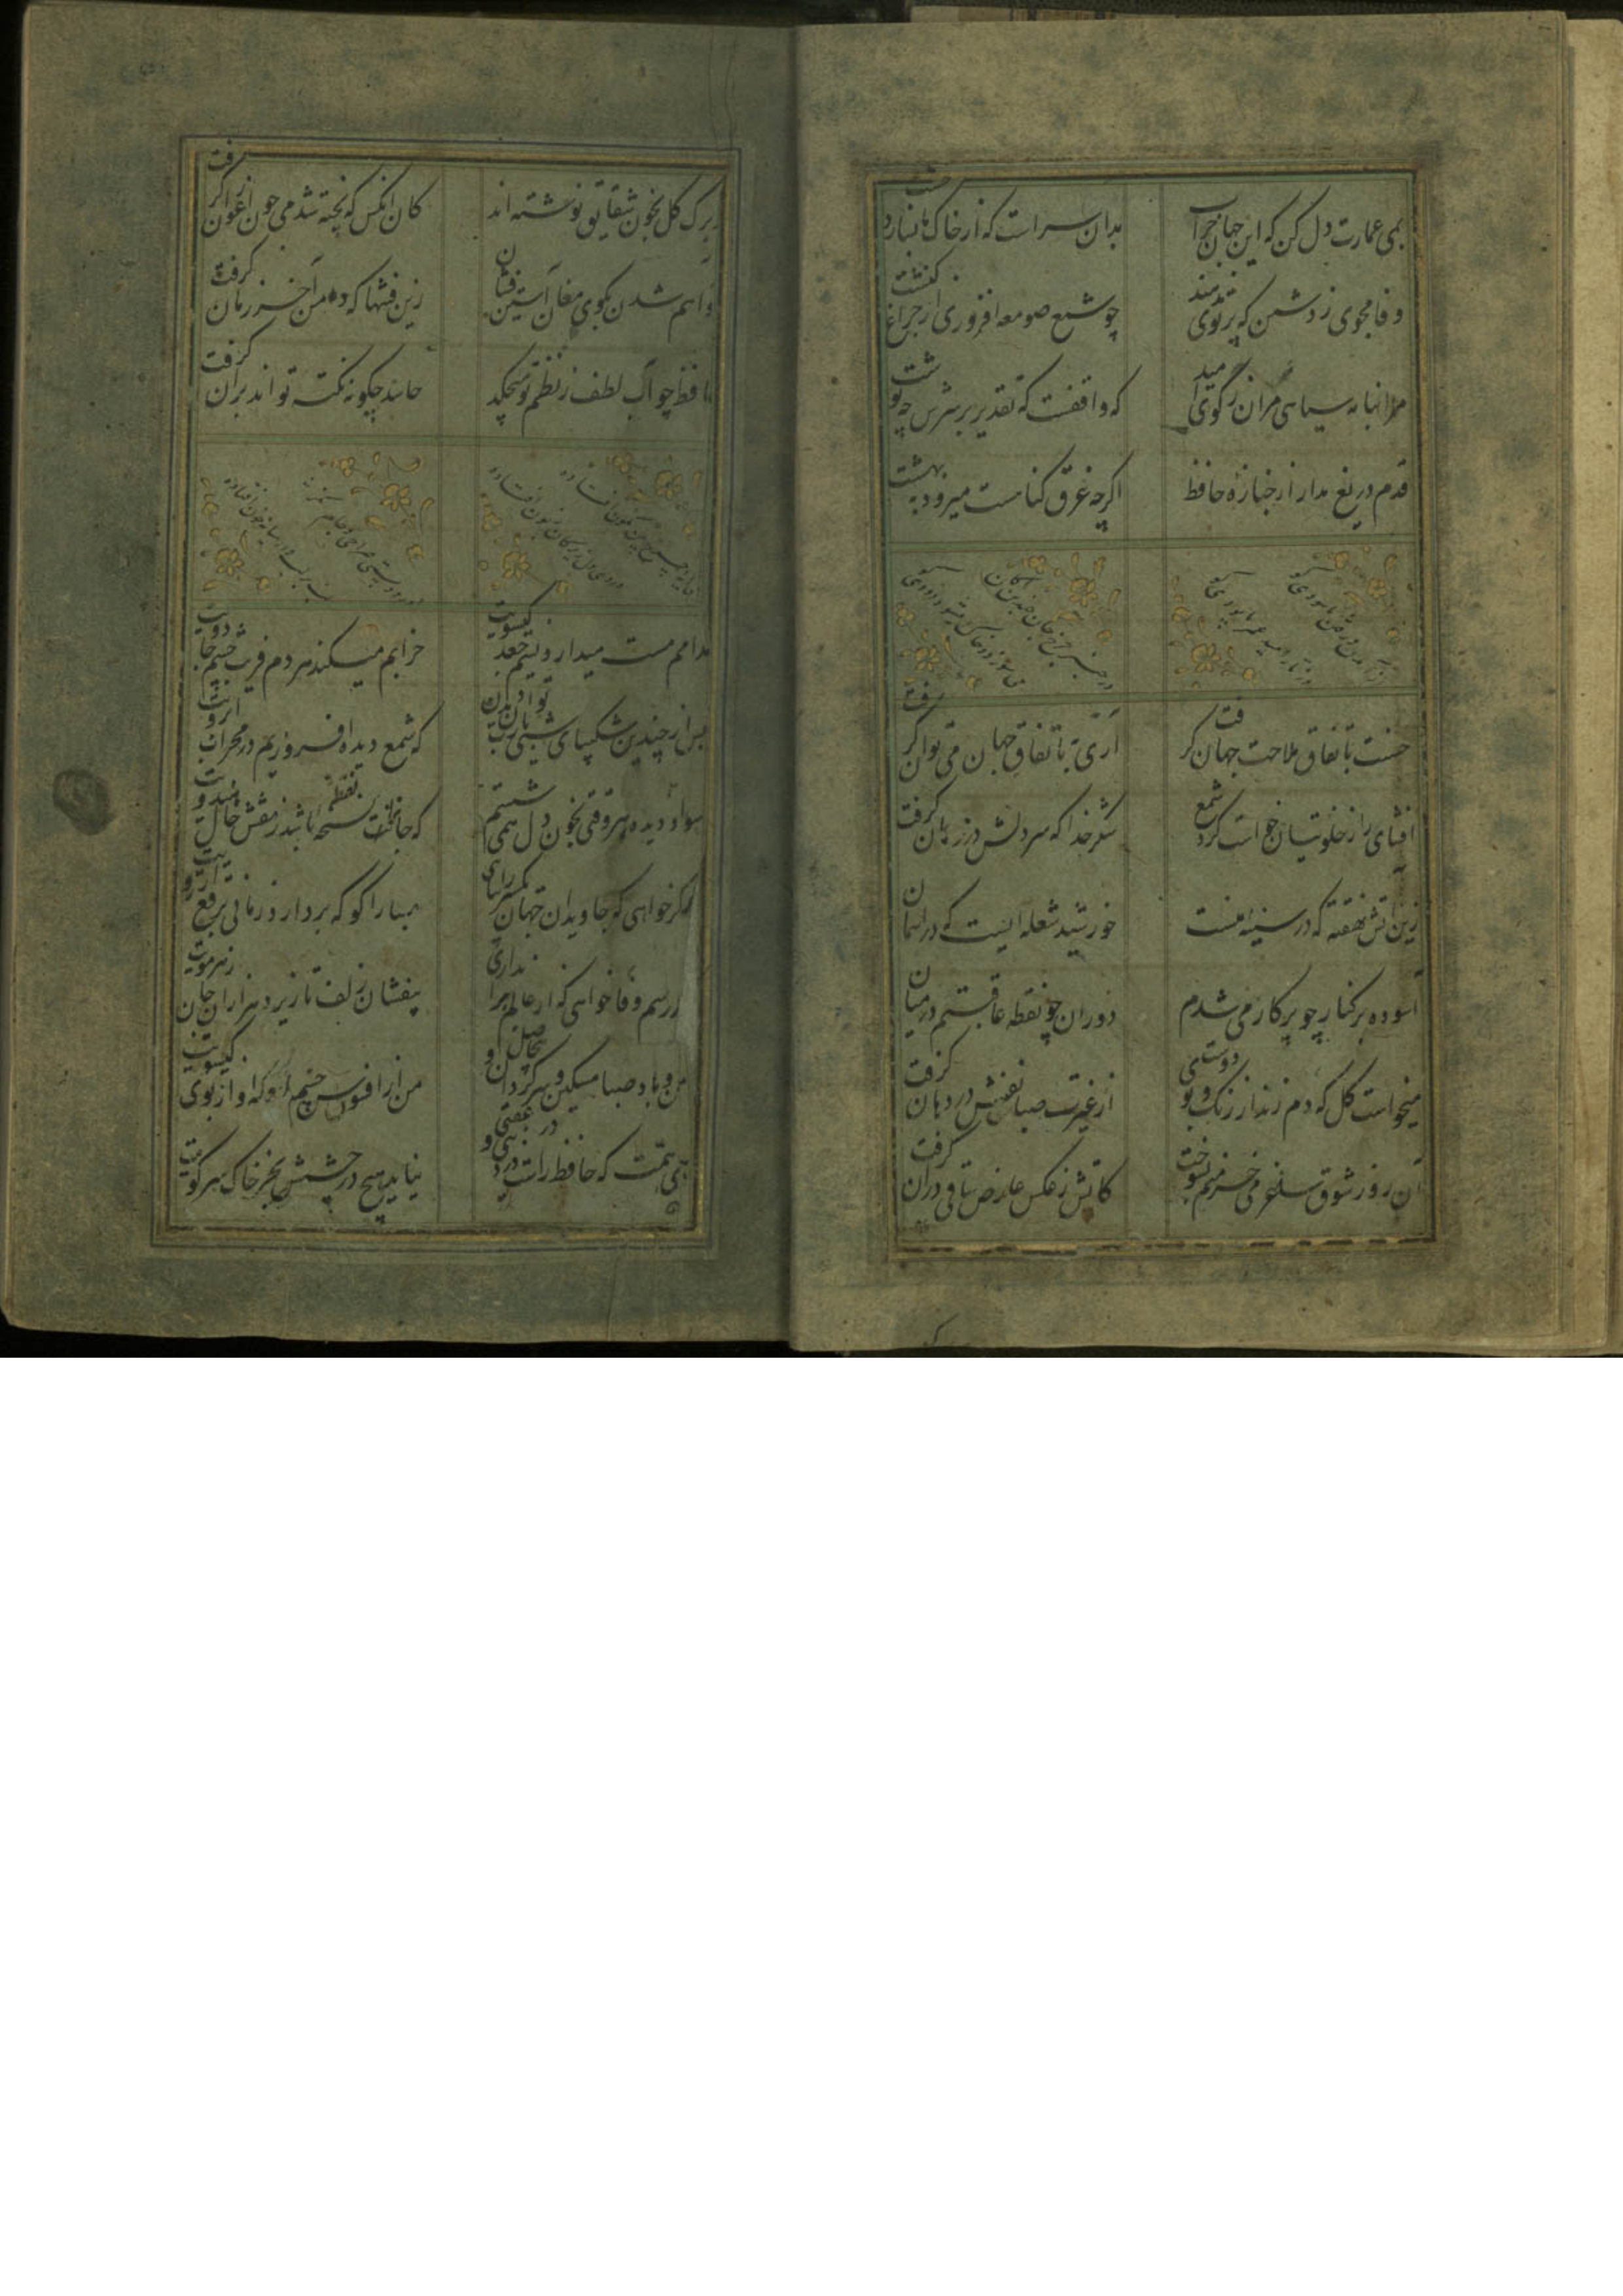 بمی عمارت دل کن که این جهان خراب
بدان سراست که از خاک ما بسازد خشت
وفا مجوی ز دشمن که پرتوی ندهد
چو شمع صومعه افروزی از چراغ کنشت
مکن بنامه سیاهی مرا
که واقفست که تقدیر بر سرش چه نوشت
قدم دریغ مدار از جنازهٔ حافظ
اگرچه غرق گناست میرود به بهشت
حسنت باتفاق ملاحت جهان گرفت
آری باتفاق جهان می توان گرفت
افشای راز خلوتیان خواست کرد شمع
شکر خدا که سر دلش در زبان گرفت
زین آتش نهفته که در سینه منست
خورشید شعله ایست که در آسمان
آسوده بر کنار چو پرکار می شدم
دوران چو نقطه عاقبتم در میان
میخواست گل که دم زند از رنگ و بوی دوست
از غیرت صبا نفسش در دهان گرفت
آن روز شوق ساغر می خرمنم بسوخت
کاتش ز عکس عارض ساقی در آن گرفت
بر برک گل بخون شقایق نوشته اند
کان کس که پخته شد می چون ارغوان گرفت
خواهم شدن بکوی مغان آستین فشان
زین فتنها که دامن آخر زمان گرفت
حافظ چو آب لطف ز نظم تو میچکد
حاسد چگونه نکته تواند بر آن گرفت
مدامم مست میدارد نسیم جعد گیسویت
خرابم میکند هر دم فریب چشم جادویت
پس از چندین شکیبایی شبی یا رب توان دیدن
که شمع دیده افروزیم در محراب ابرویت
سواد دیده هر وقتی بخون دل همی شستم
که جانرا نسخه باشد ز نقش خال هندویت
اگر خواهی که جاویدان جهان یکسر بیارایی
صبا را گو که بردارد زمانی برقع از رویت
و گر رسم وفا خواهی که از عالم براندازی
بیفشان زلف تا ریزد هزاران جان ز هر مویت
من و باد صبا مسکین و سرگردان و بیحاصل
من از افسون چشمت و او از بوی گیسویت
زهی همت که حافظ راست در دنیی و در عقبی
نیاید هیچ در چشمش بجز خاک سر کویت